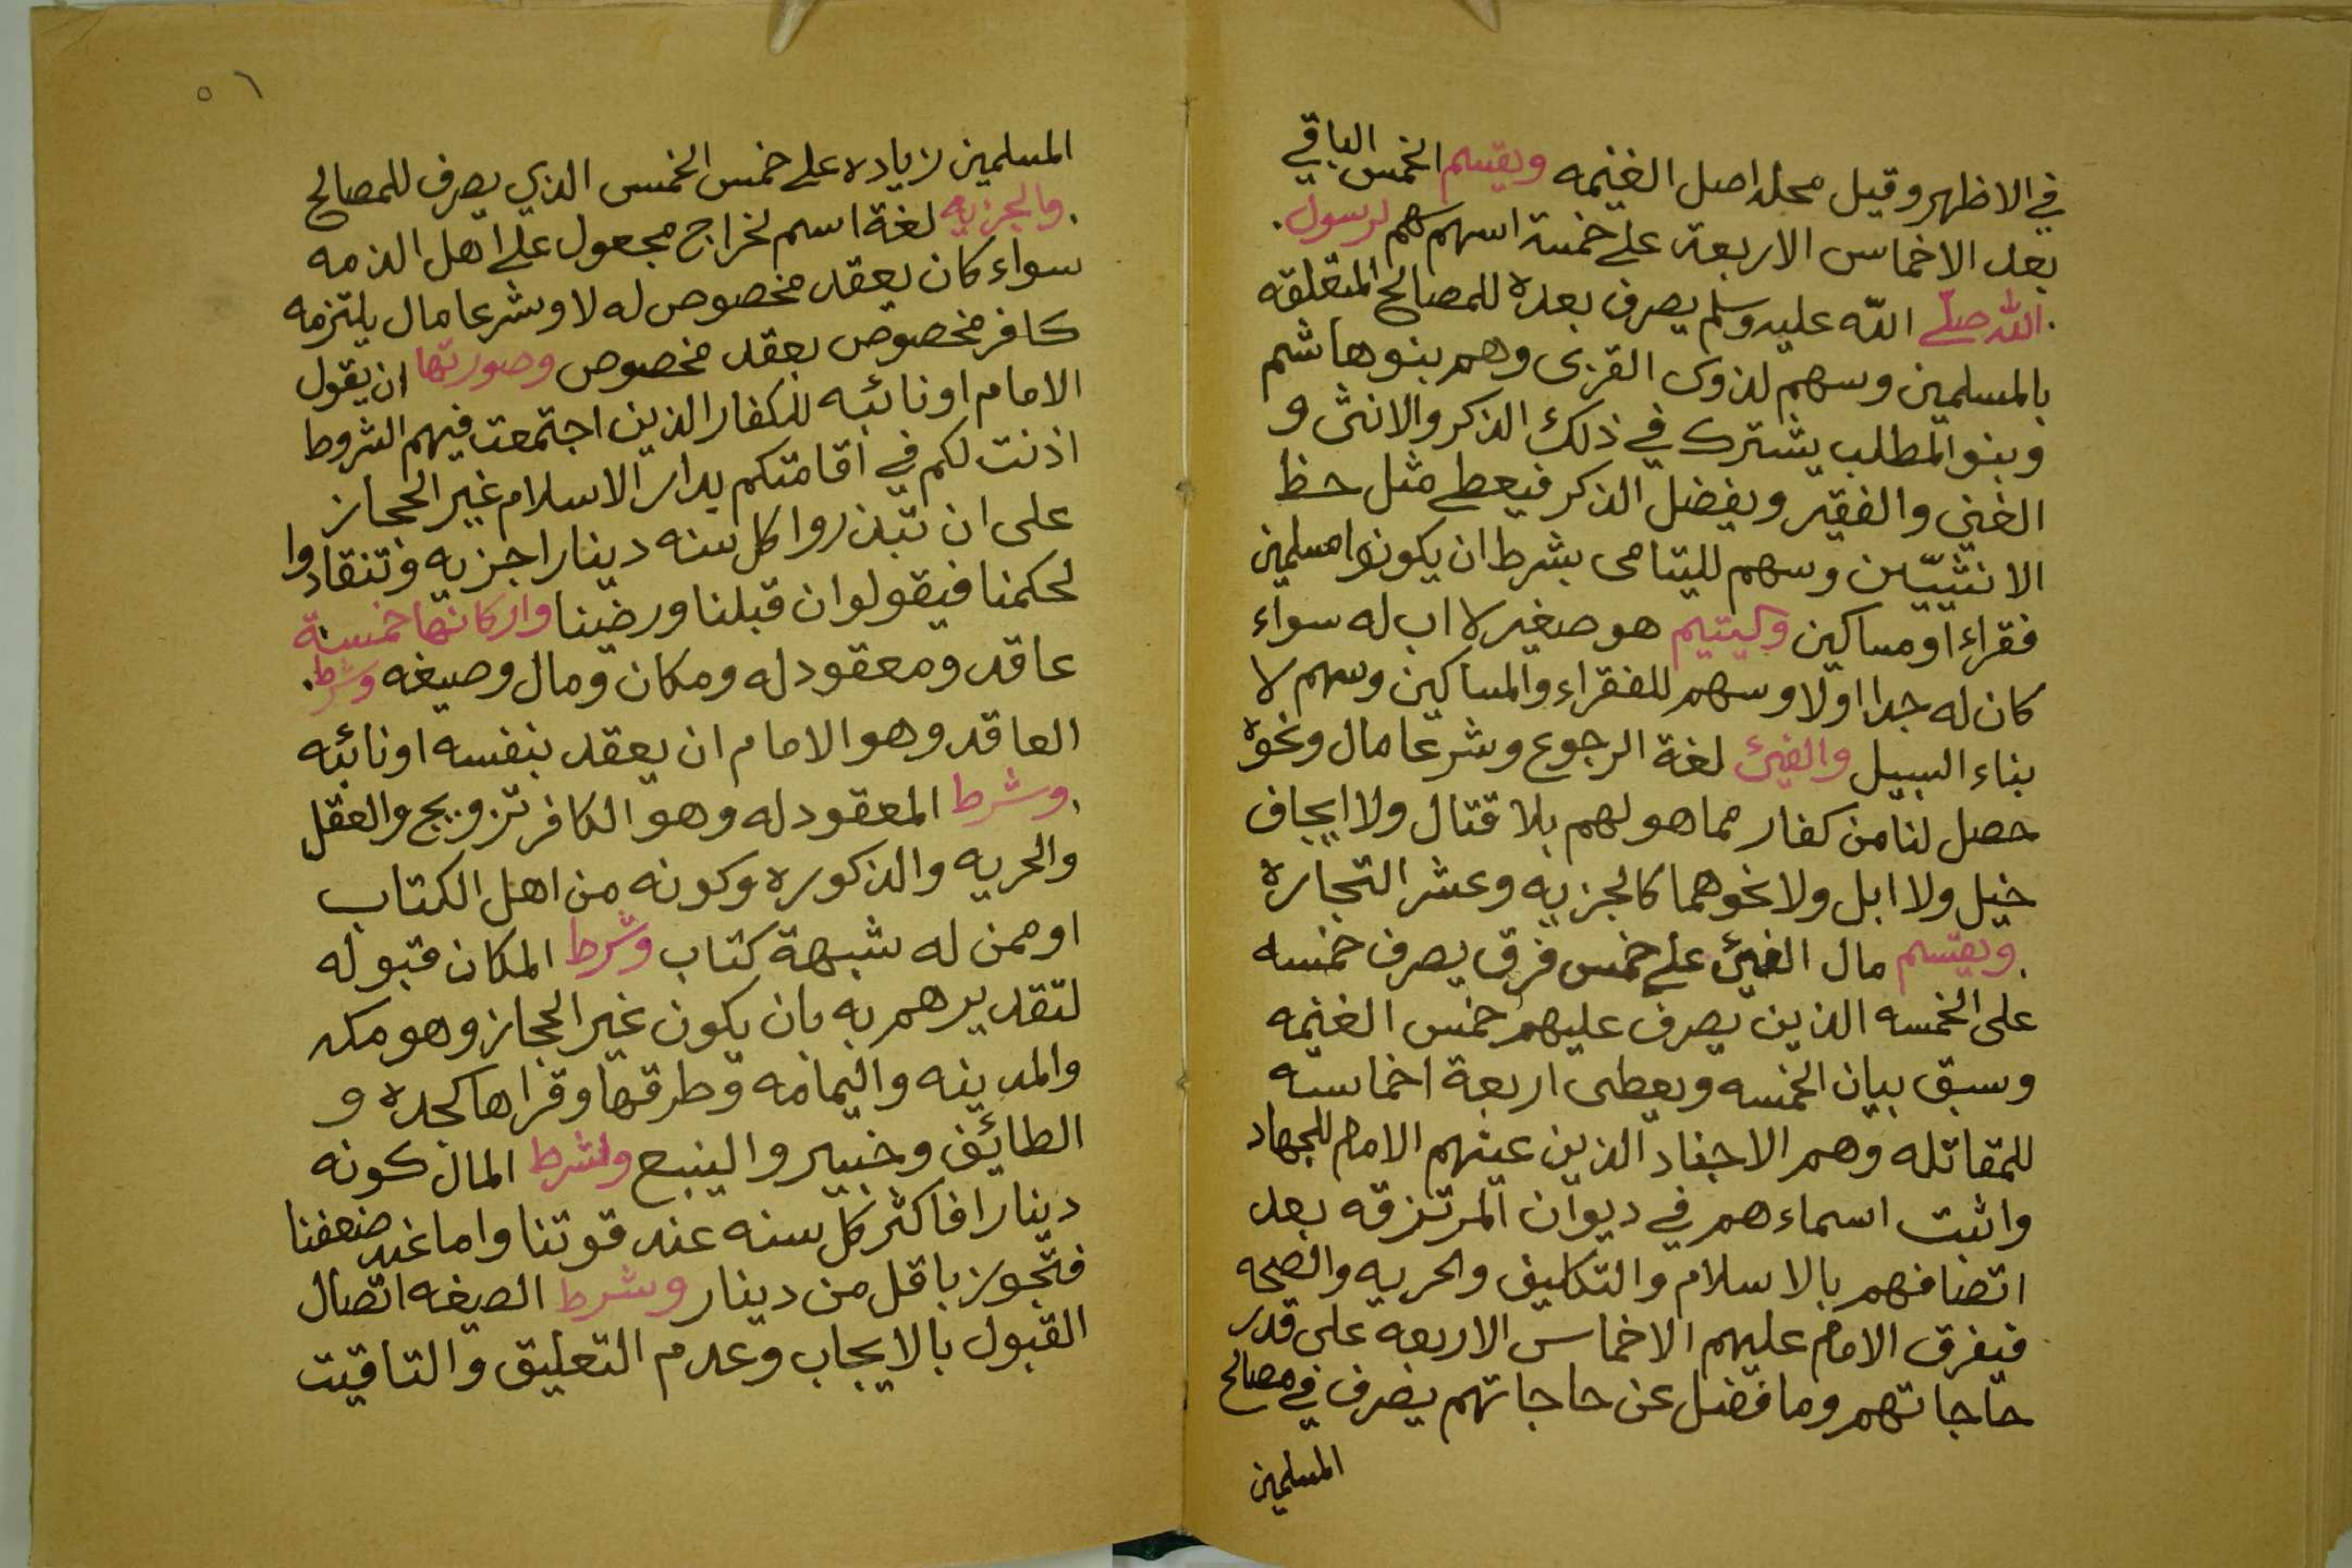 في الاظهر وقيل محله اصل الغنيمه ويقسم الخمس الباقي
بعد الاخماس الاربعة على خمسة اسهم سهم لرسول
الله صلى الله عليه وسلم يصرف بعده للمصالح المتعلقه
بالمسلمين وسهم لذوى القربى وهم بنوهاشم
وبنو المطلب يشترك في ذلك الذكر والانثى و
الغني والفقير ويفضل الذكر فيعطى مثل حظ
الانثيين وسهم لليتامى بشرط ان يكونوا مسلمين
فقراء او مساكين واليتيم هو صغير لا اب له سواء
كان له جدا اولا وسهم للفقراء والمساكين وسهم لا
بناء السبيل والفيئ لغة الرجوع وشرعا مال ونحوه
حصل لنا من كفار مما هو لهم بلا قتال ولا ايجاف
خيل ولا ابل ولا نحوهما كالجزيه وعشر التجارة
ويقسم مال الفيئ على خمس فرق يصرف خمسه
على الخمسه الذين يصرف عليهم خمس الغنيمه
وسبق بيان الخمسه ويعطى اربعة اخماسه
للمقاتله وهم الاجناد الذين عينهم الامام للجهاد
واثبت اسماءهم في ديوان المرتزقه بعد
اتصافهم بالاسلام والتكليف والحريه والصحه
فيفرق الامام عليهم الاخماس الاربعه على قدر
حاجاتهم وما فضل عن حاجاتهم يصرف في مصالح
المسلمين
٥١
المسلمين زياده على خمس الخمس الذي يصرف للمصالح
والجزيه لغة اسم لخراج مجعول على اهل الذمه
سواء كان بعقد مخصوص له لا وشرعا مال يلتزمه
كافر مخصوص بعقد مخصوص وصورتها ان يقول
الامام او نائبه للكفار الذين اجتمعت فيهم الشروط
اذنت لكم في اقامتكم بدار الاسلام غير الحجاز
على ان تبذروا كل سنه دينارا جزيه وتنقادوا
لحكمنا فيقولوان قبلنا ورضينا واركانها خمسة
عاقد ومعقود له ومكان ومال وصيغه وشرط
العاقد وهو الامام ان يعقد بنفسه او نائبه
وشرط المعقود له وهو الكافر تزويج والعقل
والحريه والذكوره وكونه من اهل الكتاب
او ممن له شبهة كتاب وشرط المكان قبوله
لتقديرهم به بان يكون غير الحجاز وهو مكه
والمدينه واليمامه وطرقها وقراها كجده و
الطائف وخيبر والينبع وشرط المال كونه
دينارا فاكثر كل سنه عند قوتنا واما عند ضعفنا
فتجوز باقل من دينار وشرط الصيغه اتصال
القبول بالايجاب وعدم التعليق والتاقيت